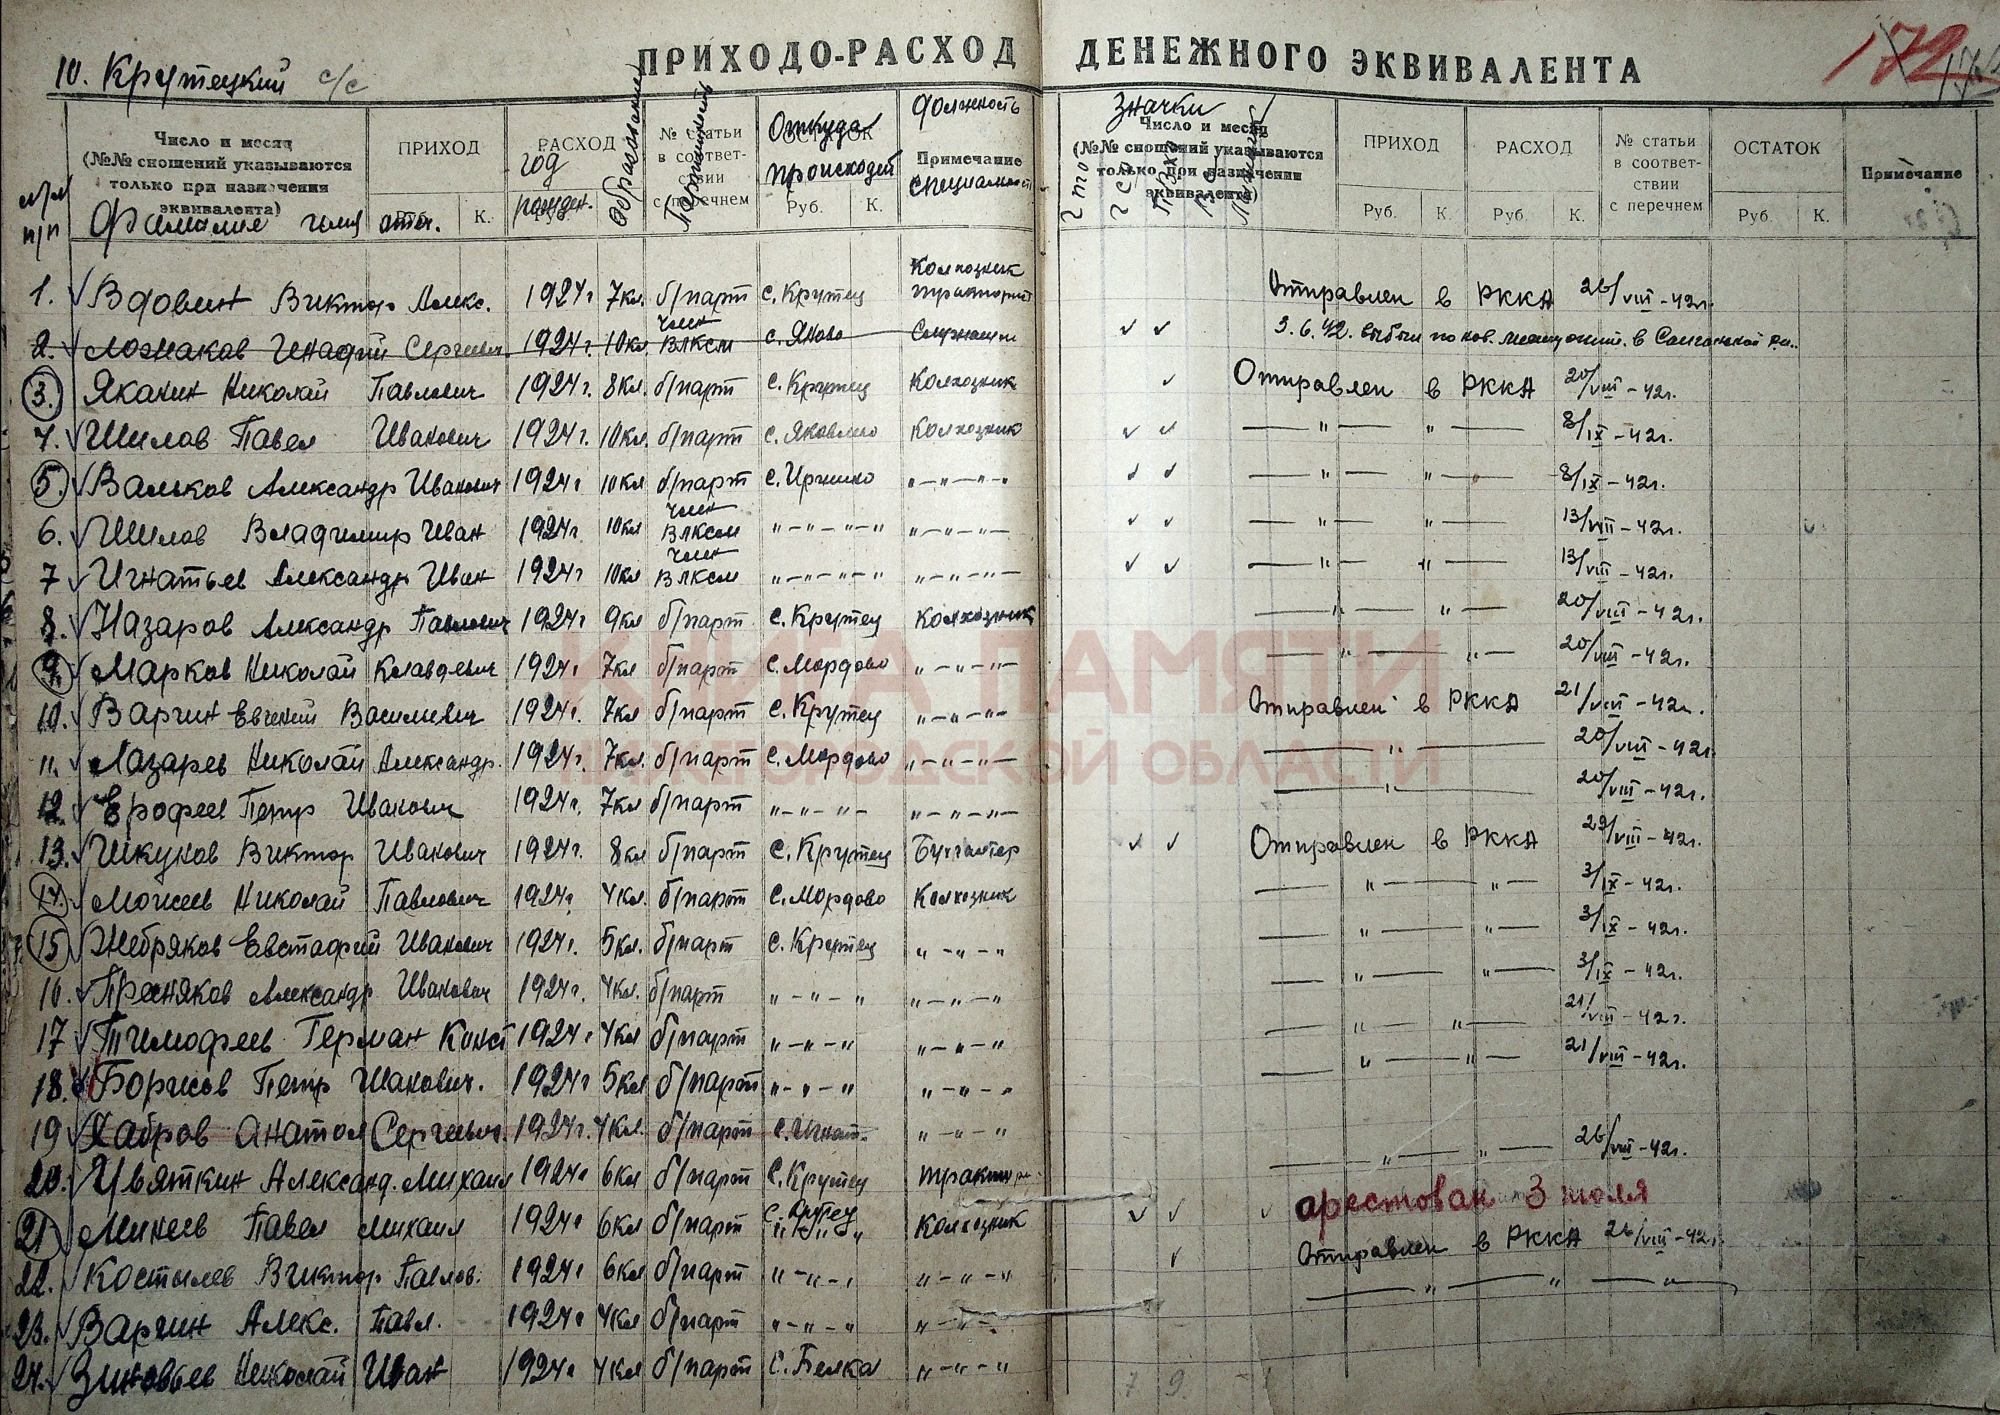 10. Крутецкий с/с
ПРИХОДО-РАСХОД ДЕНЕЖНОГО ЭКВИВАЛЕНТА
172
Число и месяц (№№ сношений указываются только при назначении эквивалента) ПРИХОД К. РАСХОД № статьи в соответствии с перечнем ОСТАТОК Руб. К. Примечание
№/№ п/п Фамилие имя отч. год рожден. Образование Партийность Откуда происходит должность специальность
Значки
Число и месяц (№№ сношений указываются только при назначении эквивалента) ПРИХОД Руб. К. РАСХОД Руб. К. № статьи в соответствии с перечнем ОСТАТОК Руб. К. Примечание
ГТО ГСО ПВХО
1. Вдовин Виктор Алекс. 1924г 7кл. б/парт с. Крутец Колхозник тракторист Отправлен в РККА 26/VIII-42г.
2. Ложаков Генадий Сергеевич 1924г. 10кл. член ВЛКСМ с. Яково Служащий ✓ ✓ 3.6.42. выбыл по нов.
3. Яканин Николай Павлович 1924г. 8кл. б/парт с. Крутец Колхозник ✓ Отправлен в РККА 20/VIII-42г.
4. Шилов Павел Иванович 1924г. 10кл. б/парт Колхозник ✓ ✓ — " — " — 8/IX-42г.
5. Вальков Александр Иванович 1924г 10кл б/парт "-"-"-" ✓ ✓ — " — " — 8/IX-42г.
6. Шилов Владимир Иван 1924г 10кл член ВЛКСМ "-"-"-" "-"-"-" ✓ ✓ — " — " — 13/VIII-42г.
7 Игнатьев Александр Иван 1924г 10кл член ВЛКСМ "-"-"-" "-"-"-" ✓ ✓ — " — " — 13/VIII-42г.
8. Назаров Александр Павлович 1924г 9кл б/парт с. Крутец Колхозник — " — " — 20/VIII-42г.
9. Марков Николай Клавдевич 1924г 7кл б/парт с. Мордово "-"-"-" — " — " — 20/VIII-42г.
10. Варгин Евгений Василиевич 1924г. 7кл б/парт с. Крутец "-"-"-" Отправлен в РККА 21/VIII-42г.
11. Лазарев Николай Александр. 1924г. 7кл. б/парт с. Мордово "-"-"-" — " — 20/VIII-42г.
12. Ерофеев Петр Иванович 1924г. 7кл б/парт "-"-"-" "-"-"-" — " — 20/VIII-42г.
13. Шкунов Виктор Иванович 1924г. 8кл б/парт с. Крутец Бухгалтер ✓ ✓ Отправлен в РККА 29/VIII-42г.
14. Моисеев Николай Павлович 1924г 4кл. б/парт с. Мордово Колхозник — " — " — 3/IX-42г.
15 Жебряков Евстафий Иванович 1924г. 5кл. б/парт с. Крутец "-"-" — " — " — 3/IX-42г.
16. Александр Иванович 1924г. 4кл. б/парт "-"-" "-"-" — " — " — 3/IX-42г.
17 Тимофеев Герман Конст 1924г 4кл б/парт "-"-" "-"-" — " — " — 21/VIII-42г.
18. Борисов Петр Иванович. 1924г 5кл б/парт "-"-" "-"-" — " — " — 21/VIII-42г.
19 Хабров Анатол Сергеевич. 1924г. 4кл. б/парт "-"-"
20. Цвяткин Александ. Михаил 1924г 6кл б/парт с. Крутец — " — " — 26/VIII-42г.
21 Минеев Павел Михаил 1924г 6кл б/парт с. Крутец Колхозник ✓ ✓ ✓ арестован 3 июля
22. Костылев Виктор Павлов. 1924г 6кл б/парт "-"-" "-"-" ✓ Отправлен в РККА 26/VIII-42г.
23. Варгин Алекс. Павл. 1924г 4кл б/парт "-"-" "-"-" — " — " — "
24. Зиновьев Николай Иван 1924г 4кл б/парт с. Белка "-"-"
7 9.
КНИГА ПАМЯТИ
НИЖЕГОРОДСКОЙ ОБЛАСТИ